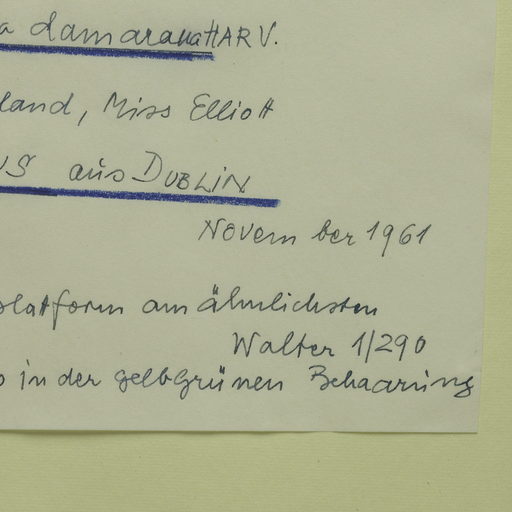 a damarana HARV.
land, Miss Elliott
US aus DUBLIN
November 1961
platform am ähnlichsten
Walter 1/290
o in der gelbgrünen Behaarung